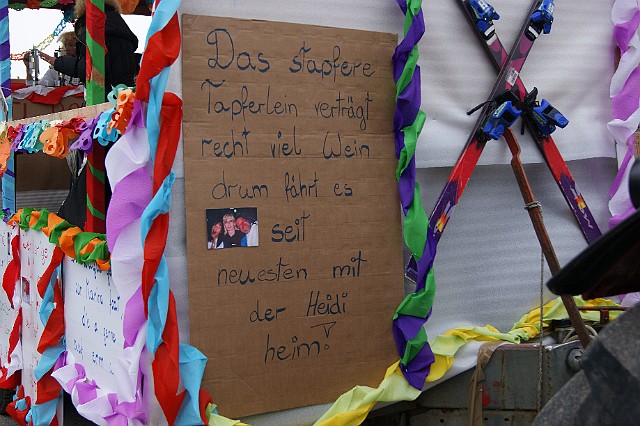 Das stapfere
Tapferlein verträgt
recht viel Wein
drum fährt es
seit
neuesten mit
der Heidi
heim!